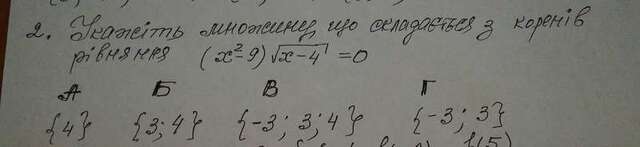 2. Укажіть множину що складається з коренів
рівняння (x²-9)√x-4 = 0
А Б В Г
{4} {3; 4} {-3; 3; 4} {-3; 3}